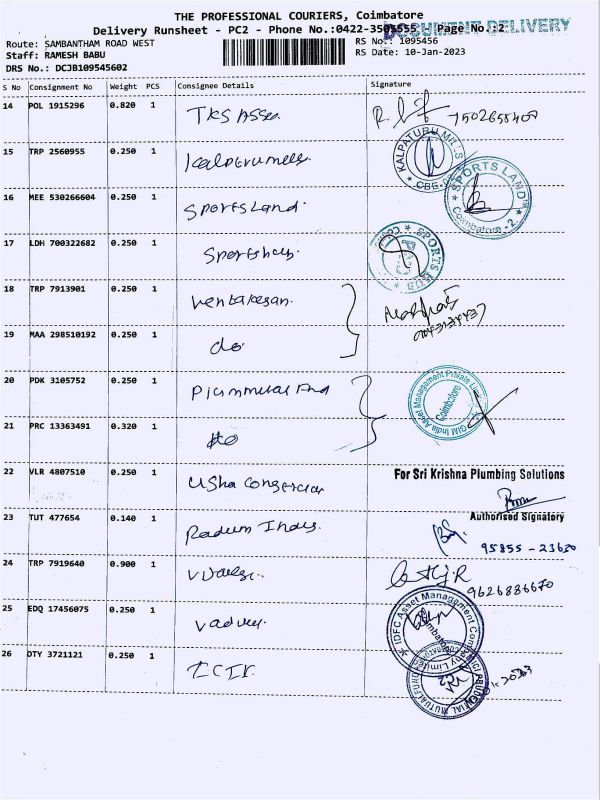 THE PROFESSIONAL COURIERS, Coimbatore
DOCUMENT DELIVERY
Delivery Runsheet - PC2 - Phone No.:0422-3505555 - Page No.:2
Route: SAMBANTHAM ROAD WEST
RS No.: 1095456
Staff: RAMESH BABU
RS Date: 10-Jan-2023
DRS No.: DCJB109545602
S No Consignment No Weight PCS Consignee Details Signature
14 POL 1915296 0.820 1 TKS Assn.
7502658407
15 TRP 2560955 0.250 1
KALPATURU MILLS
CBE
16 MEE 530266604 0.250 1 Sportsland.
SPORTS LAND
Coimbatore - 2
17 LDH 700322682 0.250 1
SPORTS HUB
18 TRP 7913901 0.250 1 Venkatesan.
19 MAA 298510192 0.250 1 do
20 PDK 3105752 0.250 1
GIM India Asset Management Private Limited
Coimbatore
21 PRC 13363491 0.320 1 do
22 VLR 4807510 0.250 1 Usha
For Sri Krishna Plumbing Solutions
Authorised Signatory
23 TUT 477654 0.140 1 Radium Indus.
95855-23620
24 TRP 7919640 0.900 1
9626886670
25 EDQ 17456075 0.250 1
IDFC Asset Management Company Limited
26 DTY 3721121 0.250 1 ICICI.